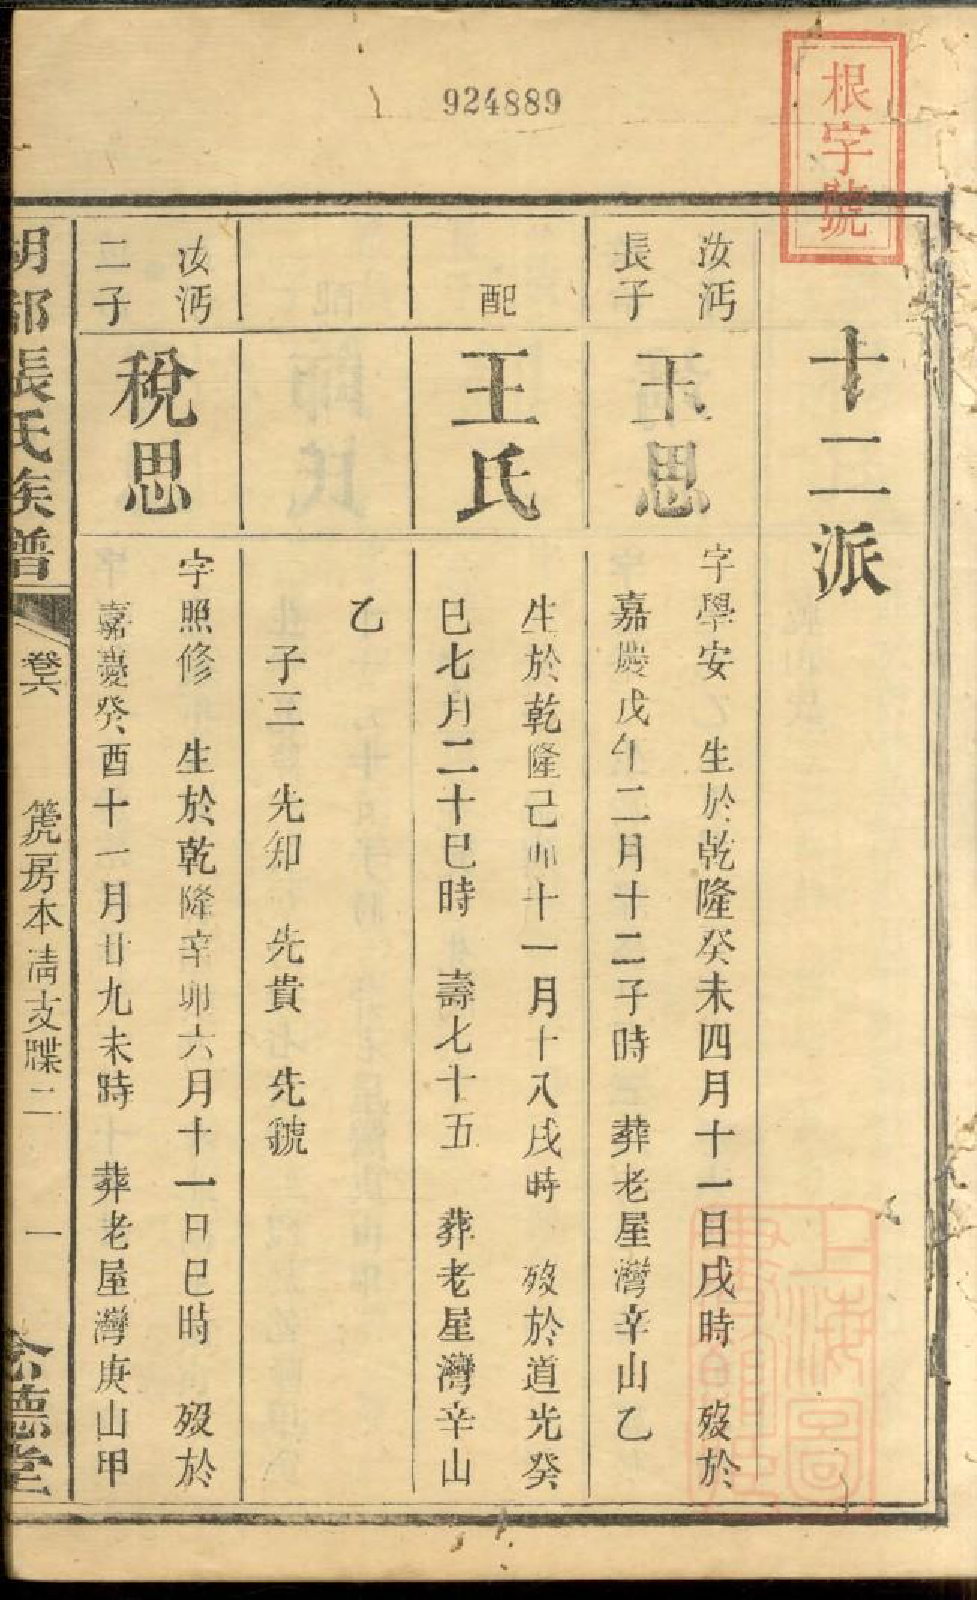 924889
根字號
十二派
汝沔
長子
玉思
字學安 生於乾隆癸未四月十一日戌時 歿於
嘉慶戊午二月十二子時 葬老屋灣辛山乙
配
王氏
生於乾隆己卯十一月十八戌時 歿於道光癸
巳七月二十巳時 壽七十五 葬老屋灣辛山
乙
子三 先知 先貴 先號
汝沔
二子
稅思
字照修 生於乾隆辛卯六月十一日巳時 歿於
嘉慶癸酉十一月廿九未時 葬老屋灣庚山甲
張氏族譜
卷六
箎房本清支牒二
一
德堂
上海圖
書館藏